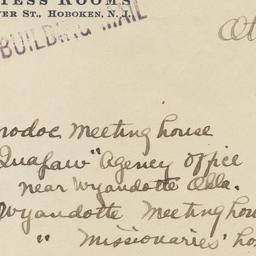 TESS ROOMS
VER ST., HOBOKEN, N. J.
BUILDING MAIL
Ot
modoc Meeting house
Quapaw" Agency office
near Wyandotte Okla.
Wyandotte Meeting hou
" Missionaries' ho